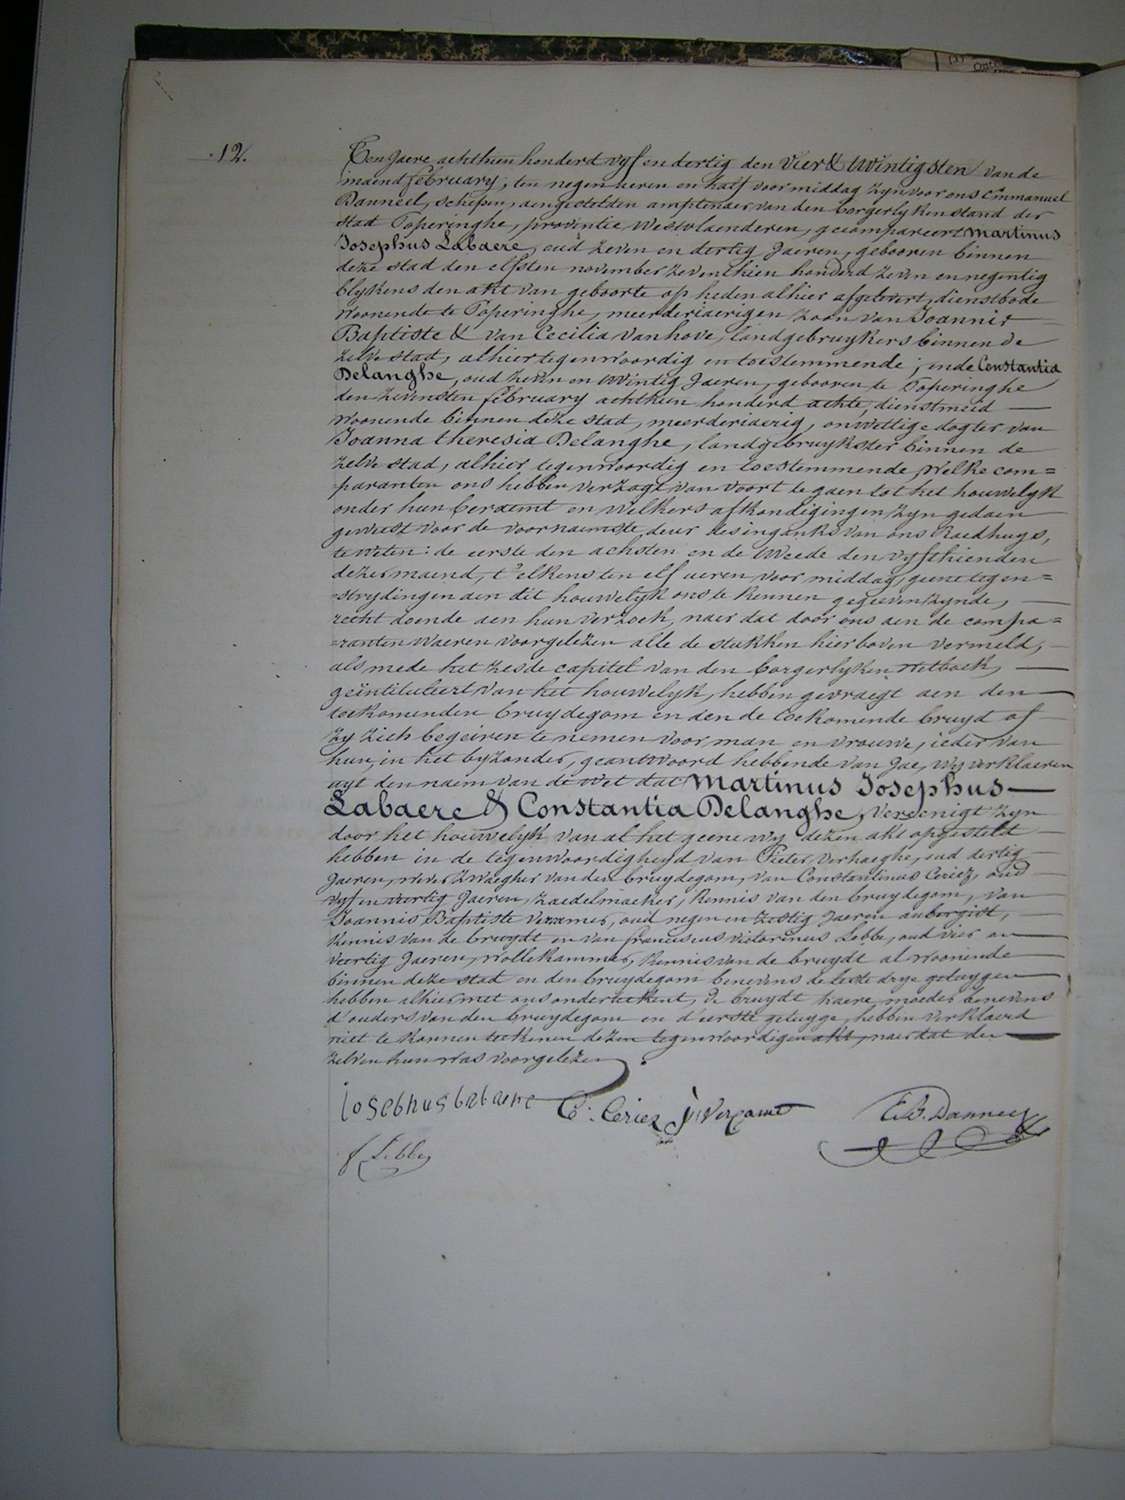 12.
Ten Jaere achthien honderd vyf en dertig den Vier & twintigsten van de
maend february, ten negen ueren en half voor middag zyn voor ons Emmanuel
Danneel, schepen, aengestelden amptenaer van den borgerlyken stand der
stad Poperinghe, provintie Westvlaenderen, gecompareert Martinus
Josephus Labaere, oud zeven en dertig Jaeren, gebooren binnen
deze stad den elfsten november zeventhien honderd zeven en negentig
blykens den akt van geboorte op heden alhier afgelevert, dienstbode
woonende te Poperinghe, meerderjaerigen zoon van Joannis
Baptiste & van Cecilia Vanhove, landgebruykers binnen de
zelve stad, alhier tegenwoordig en toestemmende; ende Constantia
Delanghe, oud zeven en twintig Jaeren, gebooren te Poperinghe
den zevensten february achthien honderd achte, dienstmeid
woonende binnen deze stad, meerderjaerig, onwettige dogter van
Joanna theresia Delanghe, landgebruykster binnen de
zelve stad, alhier tegenwoordig en toestemmende, welke com=
=paranten ons hebben verzogt van voort te gaen tot het houwelyk
onder hun beraemt en welkers afkondigingen zyn gedaen
geweest voor de voornaemste deur des ingank's van ons Raedhuys,
te weten: de eerste den achsten en de tweede den vyfthienden
dezer maend, t'elkens ten elf ueren voor middag, geene tegen=
=strydingen aen dit houwelyk ons te kennen gegeven zynde,
recht doende aen hun verzoek, naer dat door ons aen de compa=
=ranten waeren voorgelezen alle de stukken hierboven vermeld,
als mede het zesde capitel van den borgerlyken wetboek,
geïntituleert van het houwelyk, hebben gevraegt aen den
toekomenden bruydegom en aen de toekomende bruyd of
zy zich begeiren te nemen voor man en vrouwe, ieder van
hun in het byzonder, geantwoord hebbende van Jae, wy verklaeren
uyt den naem van de wet dat Martinus Josephus
Labaere & Constantia Delanghe, vereenigt zyn
door het houwelyk van al het geene wy dezen akt opgestelt
hebben in de tegenwoordigheyd van Pieter Verhaeghe, oud dertig
Jaeren, wever zwaegher van den bruydegom, van Constantinus Ceriez, oud
vyf en veertig Jaeren, zaedelmaeker, kennis van den bruydegom, van
Joannis Baptiste Verzames, oud negen en zestig Jaeren aubergist,
kennis van de bruydt en van franciscus victorinus Lebbe, oud vier en
veertig Jaeren, wollekammer, kennis van de bruydt al woonende
binnen deze stad en den bruydegom benevens de leste drye getuygen
hebben alhier met ons onderteekent, de bruydt haere moeder benevens
d'ouders van den bruydegom en d'eerste getuyge, hebben verklaerd
niet te konnen teekenen dezen tegenwoordigen akt, naer dat den
zelven hun was voorgelezen
Josephus labaere C: Ceriez E. B. Danneel
f Lebbe